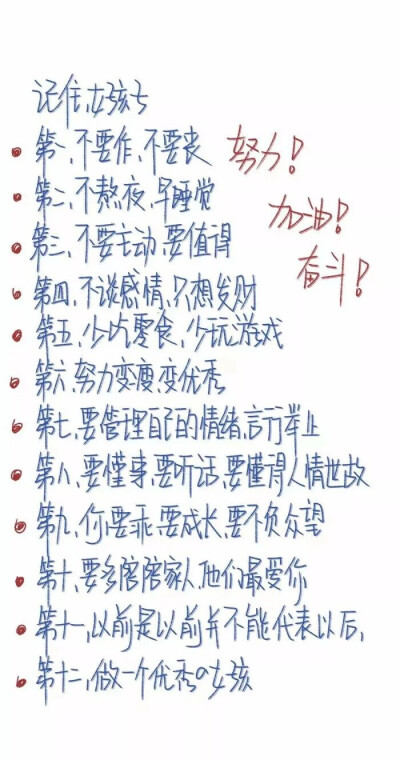 记住,女孩子
第一、不要作、不要丧
努力!
第二、不熬夜、早睡觉
加油!
第三、不要主动、要值得
奋斗!
第四、不谈感情、只想发财
第五、少吃零食、少玩游戏
第六、努力变瘦、变优秀
第七、要管理自己的情绪、言行举止
第八、要懂事、要听话、要懂得人情世故
第九、你要乖、要成长、要不负众望
第十、要多陪陪家人、他们最爱你
第十一、以前是以前并不能代表以后、
第十二、做一个优秀の女孩